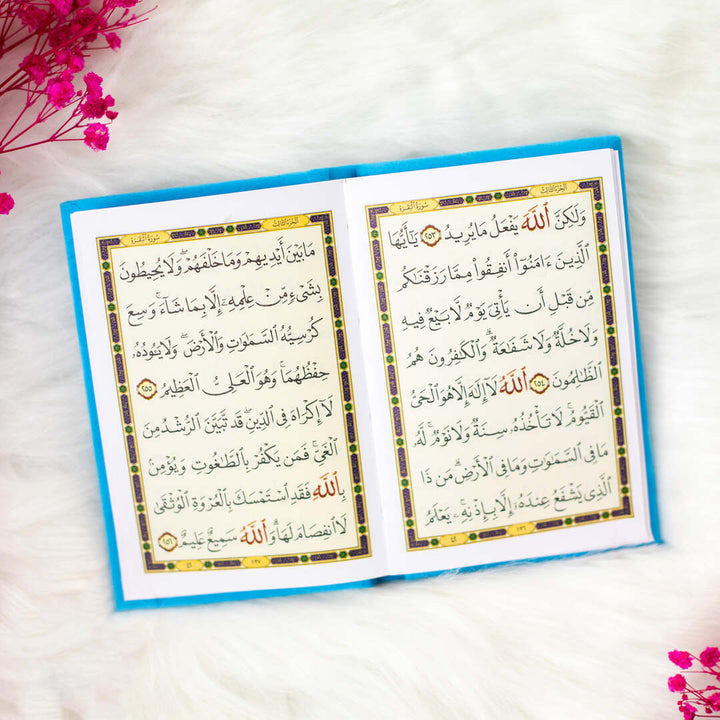 سورة البقرة الجزء الثالث
وَلَٰكِنَّ ٱللَّهَ يَفْعَلُ مَا يُرِيدُ ٢٥٣ يَٰٓأَيُّهَا
ٱلَّذِينَ ءَامَنُوٓا۟ أَنفِقُوا۟ مِمَّا رَزَقْنَٰكُم
مِّن قَبْلِ أَن يَأْتِىَ يَوْمٌ لَّا بَيْعٌ فِيهِ
وَلَا خُلَّةٌ وَلَا شَفَٰعَةٌ ۗ وَٱلْكَٰفِرُونَ هُمُ
ٱلظَّٰلِمُونَ ٢٥٤ ٱللَّهُ لَآ إِلَٰهَ إِلَّا هُوَ ٱلْحَىُّ
ٱلْقَيُّومُ ۚ لَا تَأْخُذُهُۥ سِنَةٌ وَلَا نَوْمٌ ۚ لَّهُۥ
مَا فِى ٱلسَّمَٰوَٰتِ وَمَا فِى ٱلْأَرْضِ ۗ مَن ذَا
ٱلَّذِى يَشْفَعُ عِندَهُۥٓ إِلَّا بِإِذْنِهِۦ ۚ يَعْلَمُ
١٣٦ ٤٢
سورة البقرة الجزء الثالث
مَا بَيْنَ أَيْدِيهِمْ وَمَا خَلْفَهُمْ ۖ وَلَا يُحِيطُونَ
بِشَىْءٍ مِّنْ عِلْمِهِۦٓ إِلَّا بِمَا شَآءَ ۚ وَسِعَ
كُرْسِيُّهُ ٱلسَّمَٰوَٰتِ وَٱلْأَرْضَ ۖ وَلَا يَـُٔودُهُۥ
حِفْظُهُمَا ۚ وَهُوَ ٱلْعَلِىُّ ٱلْعَظِيمُ ٢٥٥
لَآ إِكْرَاهَ فِى ٱلدِّينِ ۖ قَد تَّبَيَّنَ ٱلرُّشْدُ مِنَ
ٱلْغَىِّ ۚ فَمَن يَكْفُرْ بِٱلطَّٰغُوتِ وَيُؤْمِنۢ
بِٱللَّهِ فَقَدِ ٱسْتَمْسَكَ بِٱلْعُرْوَةِ ٱلْوُثْقَىٰ
لَا ٱنفِصَامَ لَهَا ۗ وَٱللَّهُ سَمِيعٌ عَلِيمٌ ٢٥٦
١٣٧ ٤٢